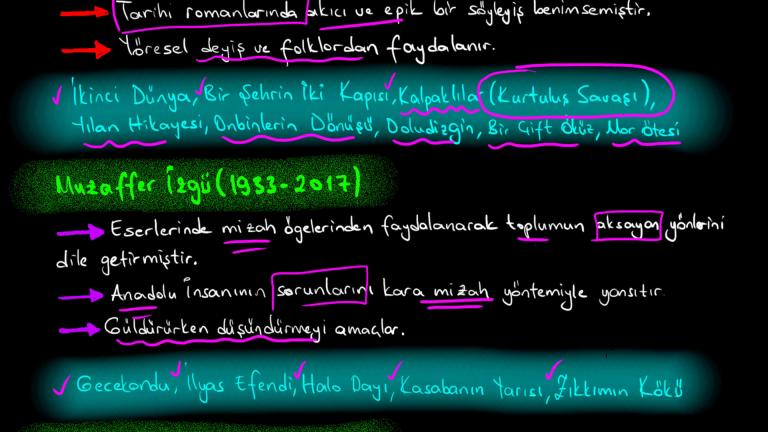 Tarihi romanlarında akıcı ve epik bir söyleyiş benimsemiştir.
Yöresel deyiş ve folklordan faydalanır.
İkinci Dünya, Bir Şehrin İki Kapısı, Kalpaklılar (Kurtuluş Savaşı),
Yılan Hikayesi, Onbinlerin Dönüşü, Doludizgin, Bir Çift Öküz, Mor Ötesi
Muzaffer İzgü (1933-2017)
Eserlerinde mizah ögelerinden faydalanarak toplumun aksayan yönlerini
dile getirmiştir.
Anadolu İnsanının sorunlarını kara mizah yöntemiyle yansıtır.
Güldürürken düşündürmeyi amaçlar.
Gecekondu, İlyas Efendi, Halo Dayı, Kasabanın Yarısı, Zıkkımın Kökü